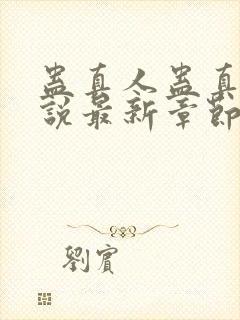 蛊真人蛊真
說最新章節
劉賓